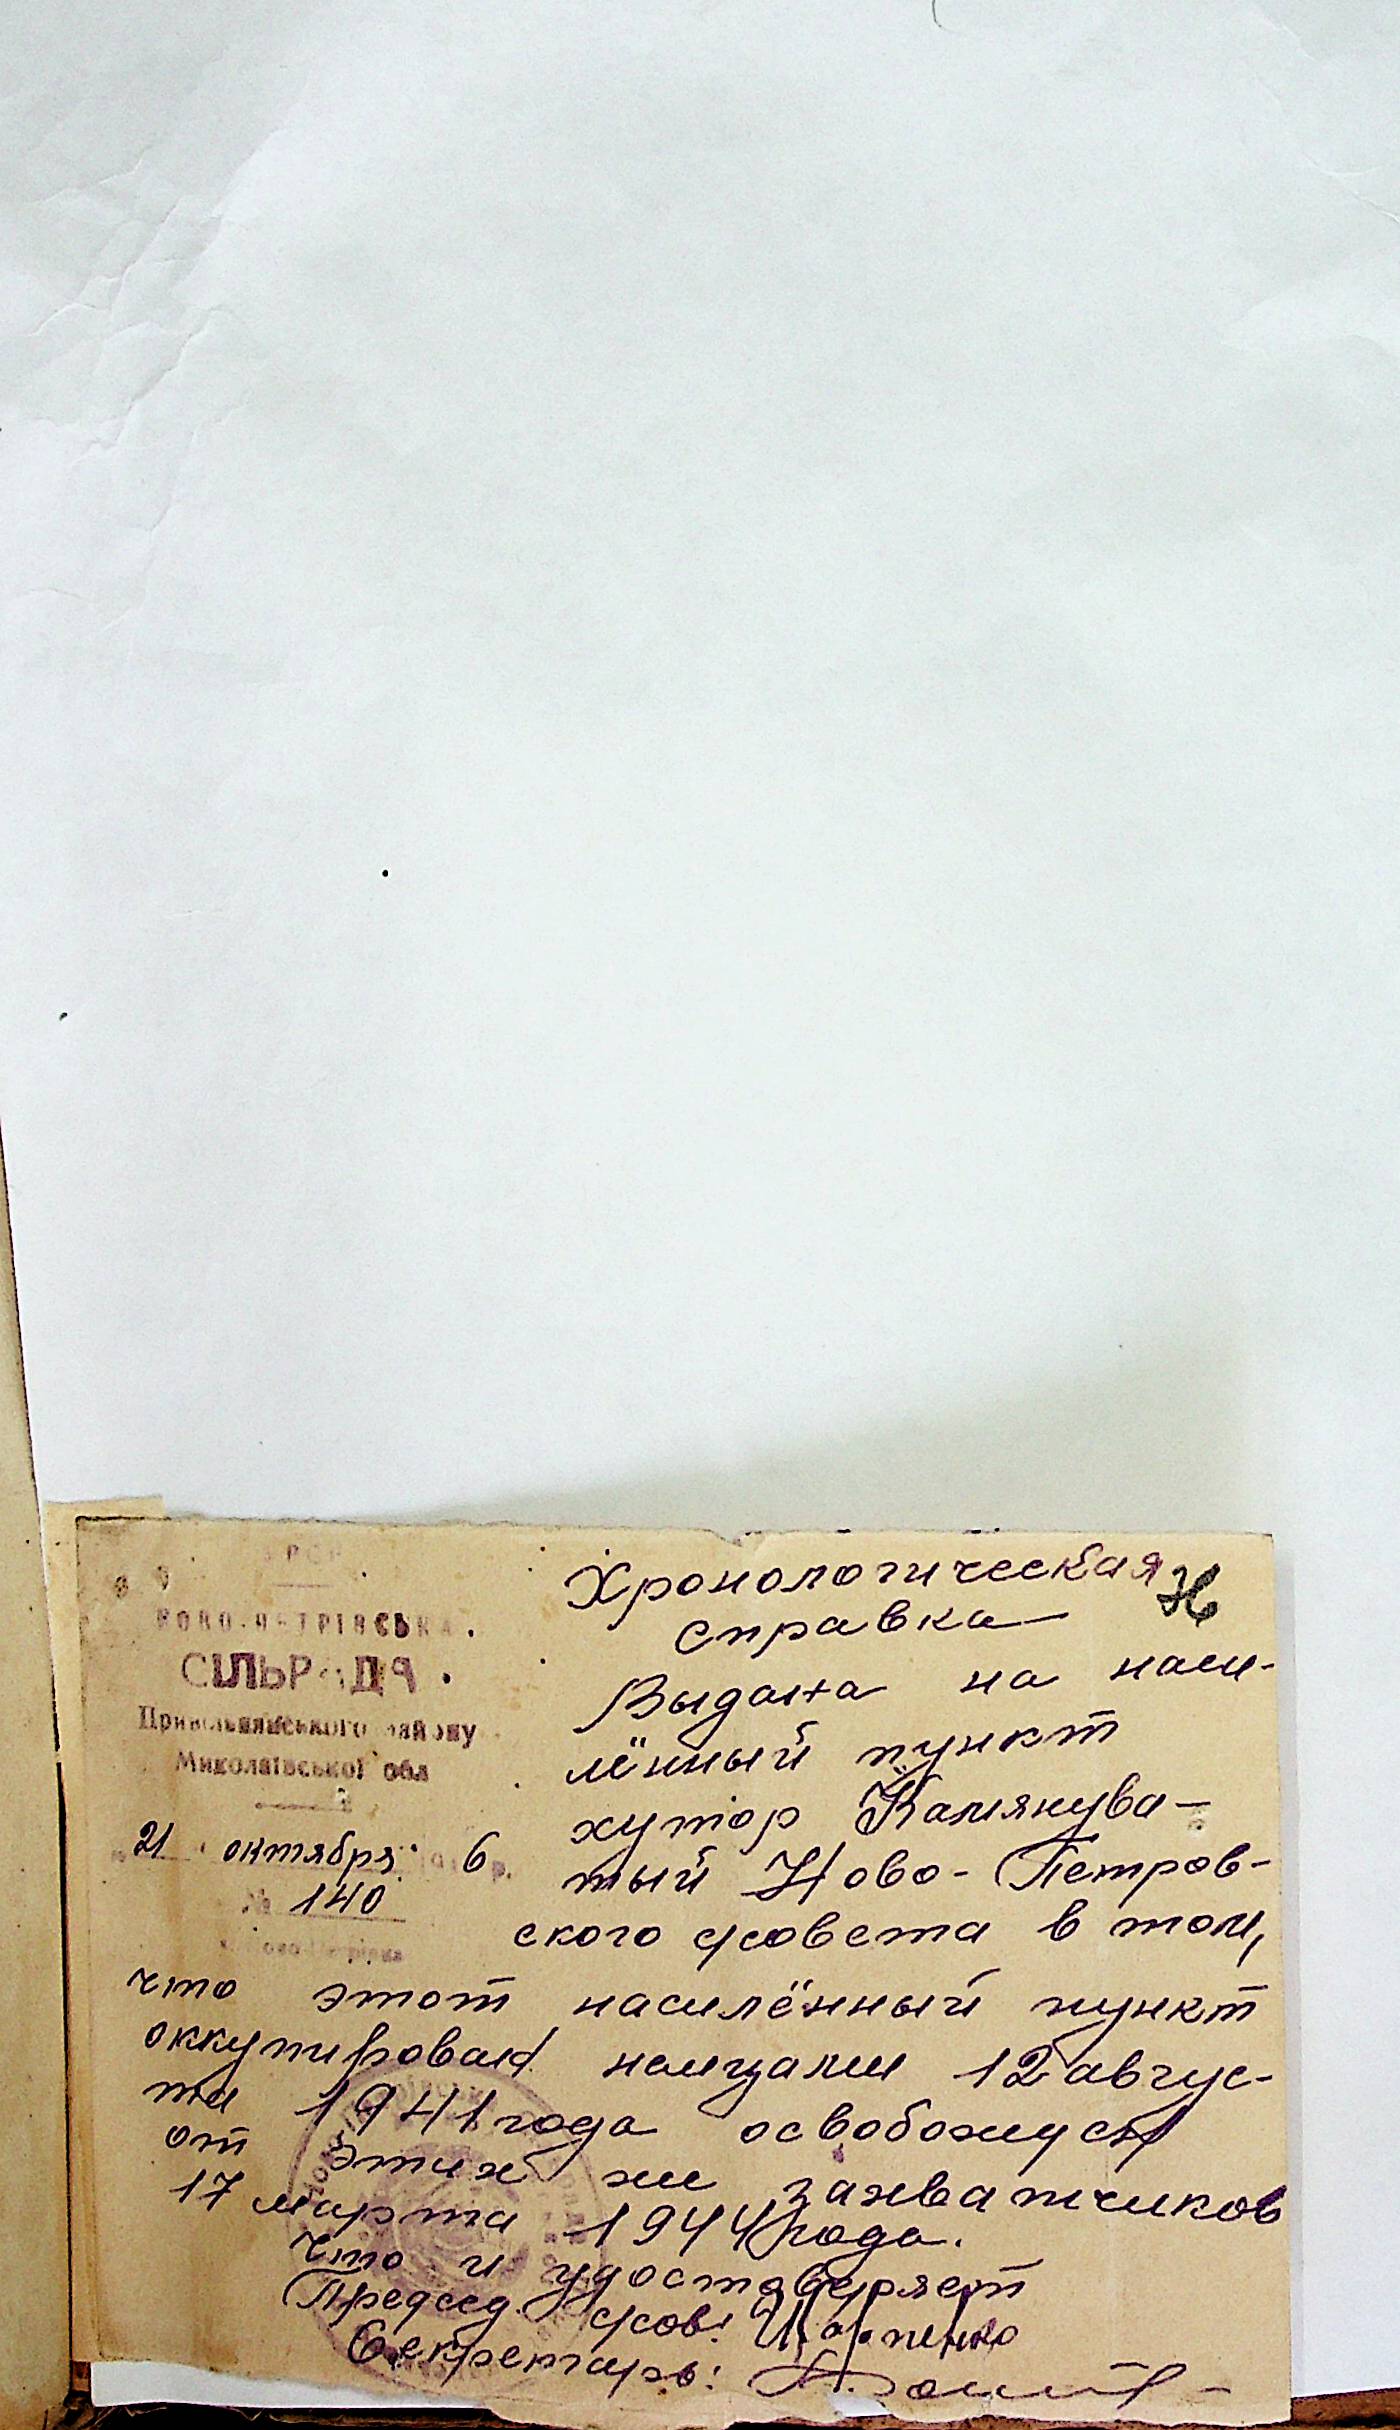 УРСР
НОВО-ПЕТРІВСЬКА
СІЛЬРАДА
Привільнянського району
Миколаївської обл
21 октября 6 р.
№ 140
с. Ново-Петрівка
Хронологическая
справка
36
Выдана на насе-
лённый пункт
хутор Камянува-
тый Ново-Петров-
ского с/совета в том,
что этот населённый пункт
оккупирован немцами 12 авгус-
та 1941 года освобожден
от этих же захватчиков
17 марта 1944 года.
Что и удостоверяет
Председ. с/сов:
Секретарь: